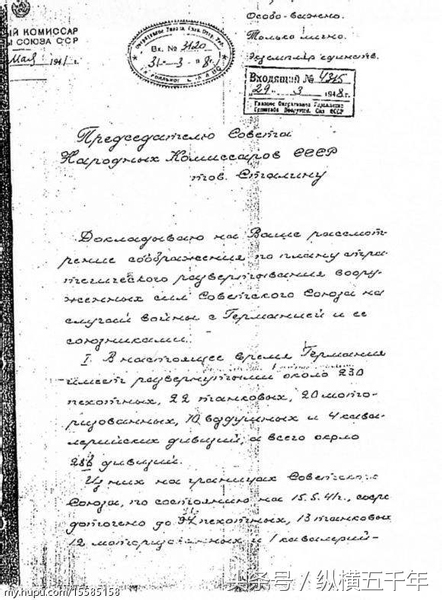 ЫЙ КОМИССАР
Ы СОЮЗА ССР
Мая 1941 г.
Вх. № 3120
31 - 3 - 8 г.
Особо важно.
Только лично.
Экземпляр единств.
Входящий №
29 3 1948 г.
Председателю Совета
Народных Комиссаров СССР
тов. Сталину
Докладываю на Ваше рассмот-
рение соображения по плану стра-
тегического развертывания воору-
женных сил Советского Союза на
случай войны с Германией и ее
союзниками.
I. В настоящее время Германия
имеет развернутыми около 230
пехотных, 22 танковых, 20 мото-
ризованных, 10 воздушных и 4 кава-
лерийских дивизий, а всего около
дивизий.
Из них на границах Советского
Союза, по состоянию на 15.5.41г., сосре
доточено до пехотных, 13 танковых
12 моторизованных и 1 кавалерий-
头条号 / 纵横五千年
my.hupu.com/15585158